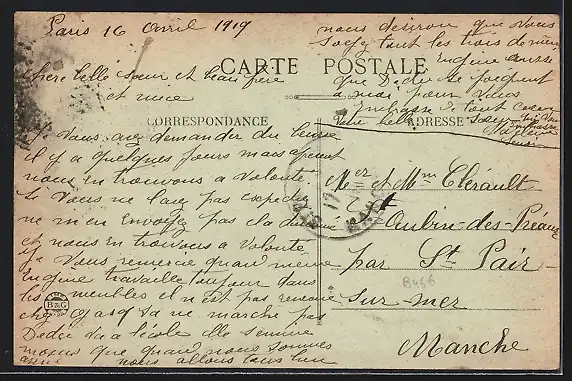 Paris 16 Avril 1919
nous désiron que vous
soyez tout les trois de même
Eugène aussi
CARTE POSTALE
chère belle sœur et beau frère
et niece
que Dédée se joignent
a moi pour vous
Embrasse de tout cœur
votre belle sœur
CORRESPONDANCE
ADRESSE
Je vous avez demander du beurre
il y a quelques jours mais a présent
nous en trouvons a volonté
si vous ne l'avez pas expedier
ne m'en envoyez pas cela diminue
et nous en trouvons a volonté
Je vous remercie quand même
Eugène travaille toujour dans
les meubles il n'est pas renvoié
chez sa ne marche pas
Dédée va a l'école elle s'ennuie
moins que quand nous sommes
nous allons tous bien
Mer et Mme Clérault
St Aubin-des-Préaux
par St Pair
sur-mer
Manche
B466
B&G
PARIS
17